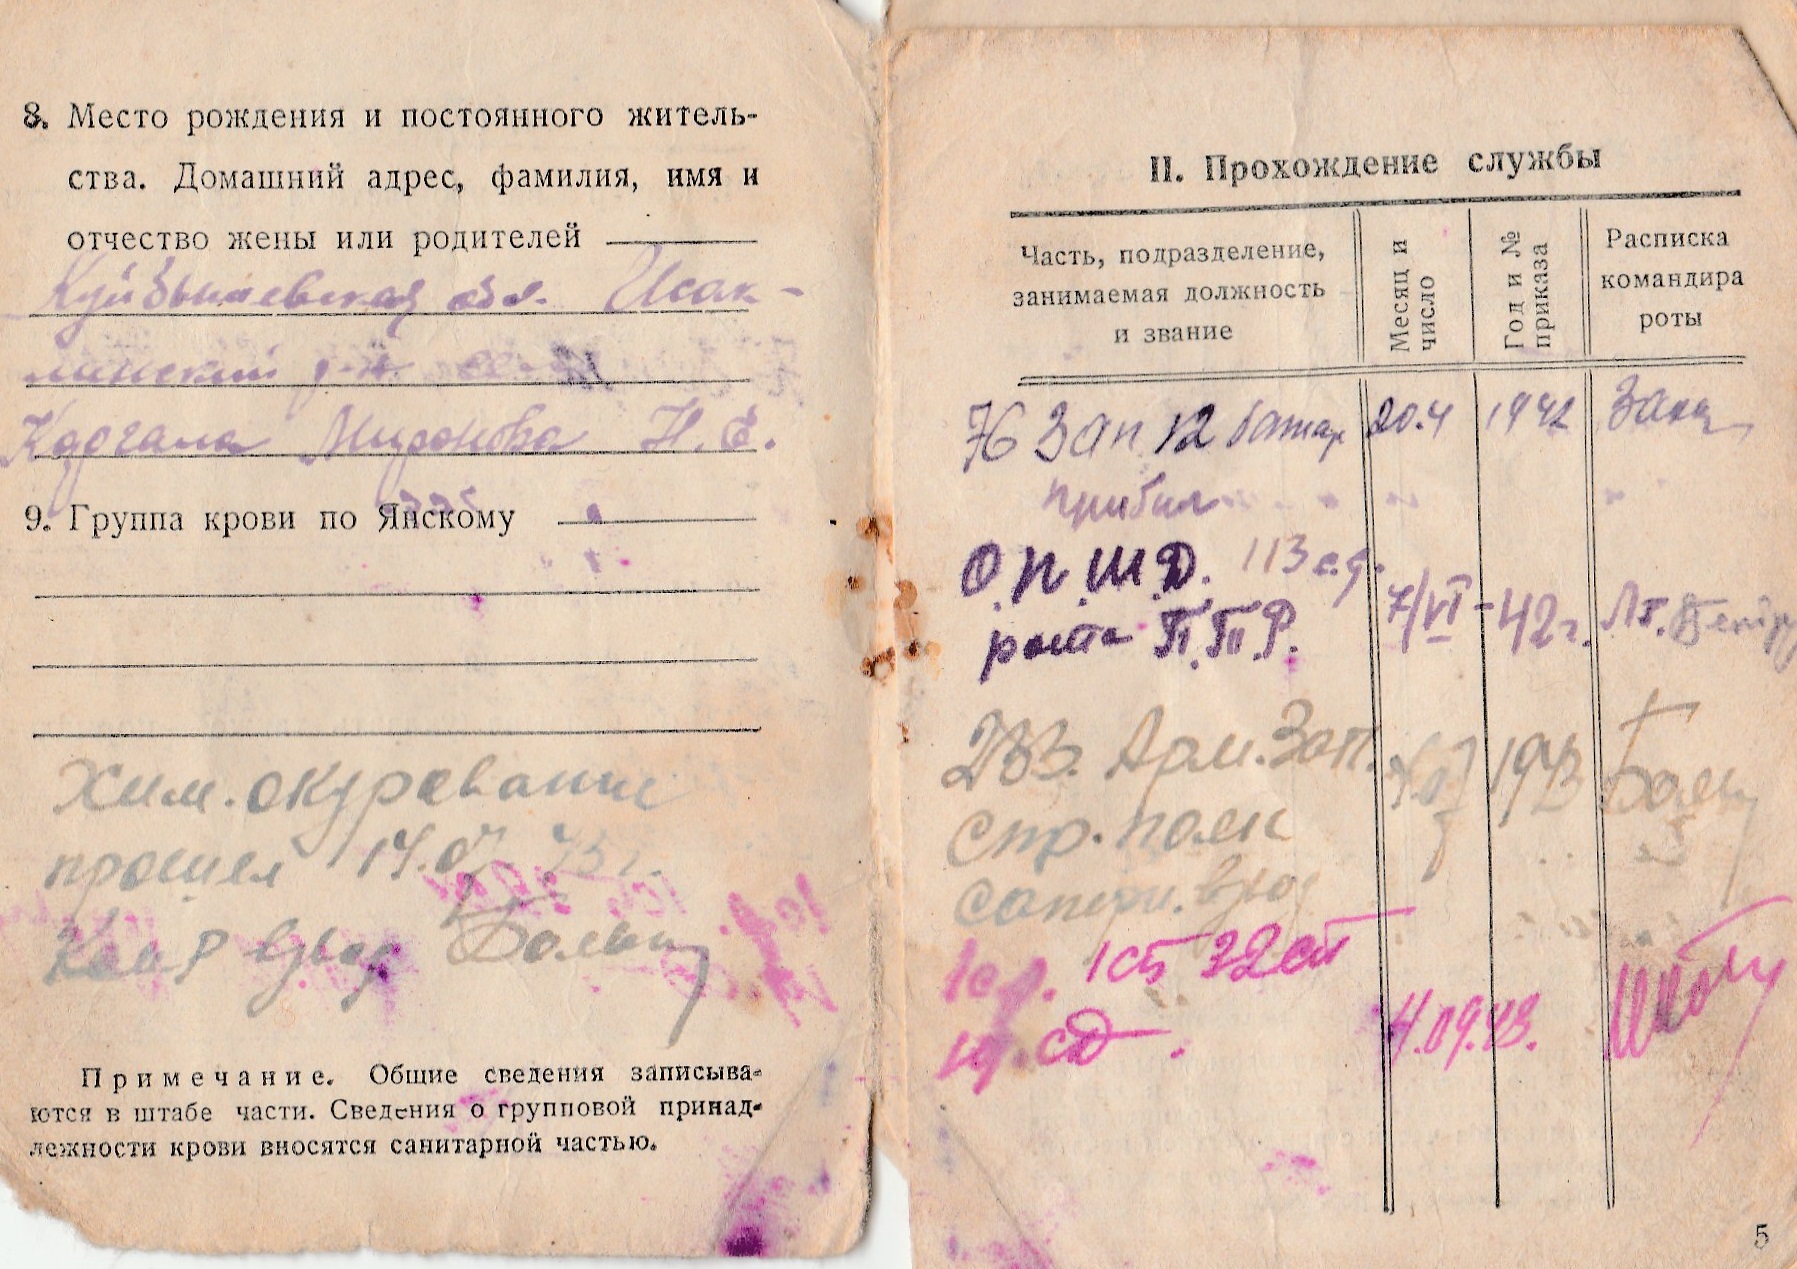 8. Место рождения и постоянного житель-
ства. Домашний адрес, фамилия, имя и
отчество жены или родителей
Куйбышевская обл. Исак-
линский р-н
Миронова Н.Е.
9. Группа крови по Янскому
Хим. окуривание
прошел 14.07 43г.
Ком
Примечание. Общие сведения записыва-
ются в штабе части. Сведения о групповой принад-
лежности крови вносятся санитарной частью.
II. Прохождение службы
Часть, подразделение,
занимаемая должность
и звание
Месяц и
число
Год и №
приказа
Расписка
командира
роты
76 Зап 12 батар 20.4 1942
прибыл
О.П.Ш.Д. 113 с.д.
рота П.Т.Р. 7/VI-42г. Лт.
233. Арм. Зап. 1943
стр. полк
1ср. 1сб 32сп
19.сд. 4.09.43.
5